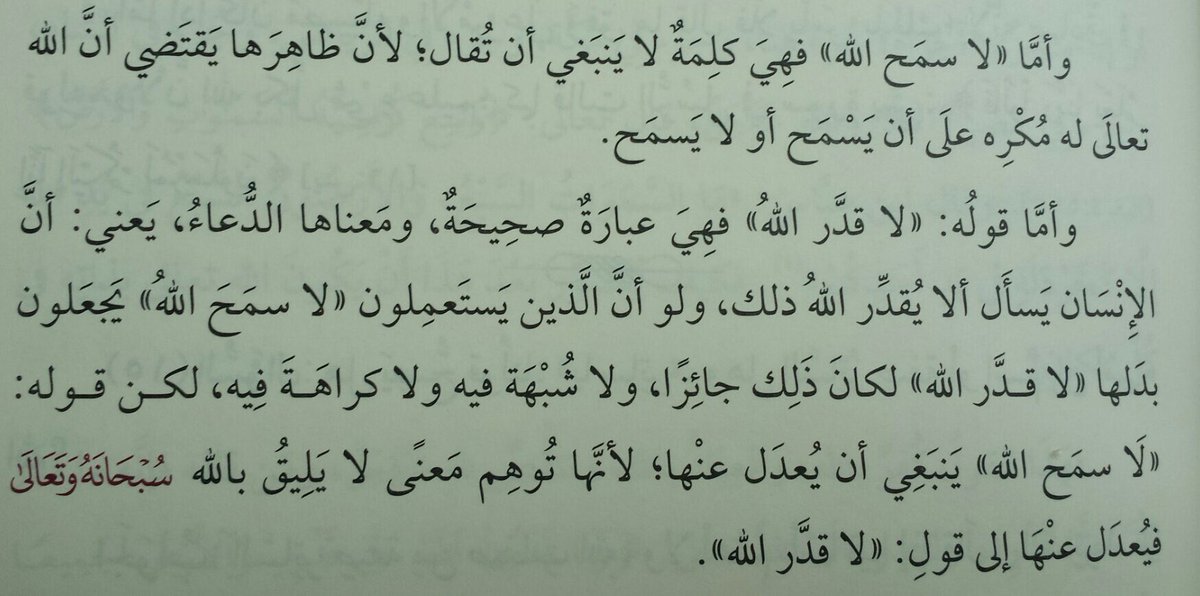 وأمَّا «لا سمَح الله» فهِيَ كلِمَةٌ لا يَنبَغي أن تُقال؛ لأنَّ ظاهِرَها يَقتَضي أنَّ الله
تعالَى له مُكْرِه علَى أن يَسْمَح أو لا يَسمَح.
وأمَّا قولُه: «لا قدَّر اللهُ» فهِيَ عبارَةٌ صحِيحَةٌ، ومَعناها الدُّعاءُ، يَعني: أنَّ
الإِنْسَان يَسأَل ألا يُقدِّر اللهُ ذلك، ولو أنَّ الَّذين يَستَعمِلون «لا سمَحَ اللهُ» يَجعَلون
بدَلها «لا قدَّر الله» لكانَ ذَلِك جائِزًا، ولا شُبْهَة فيه ولا كراهَةَ فِيه، لكن قوله:
«لَا سمَح الله» يَنبَغِي أن يُعدَل عنْها؛ لأنَّها تُوهِم مَعنًى لا يَلِيقُ بالله سُبْحَانَهُ وَتَعَالَىٰ
فيُعدَل عنْهَا إلى قولِ: «لا قدَّر الله».